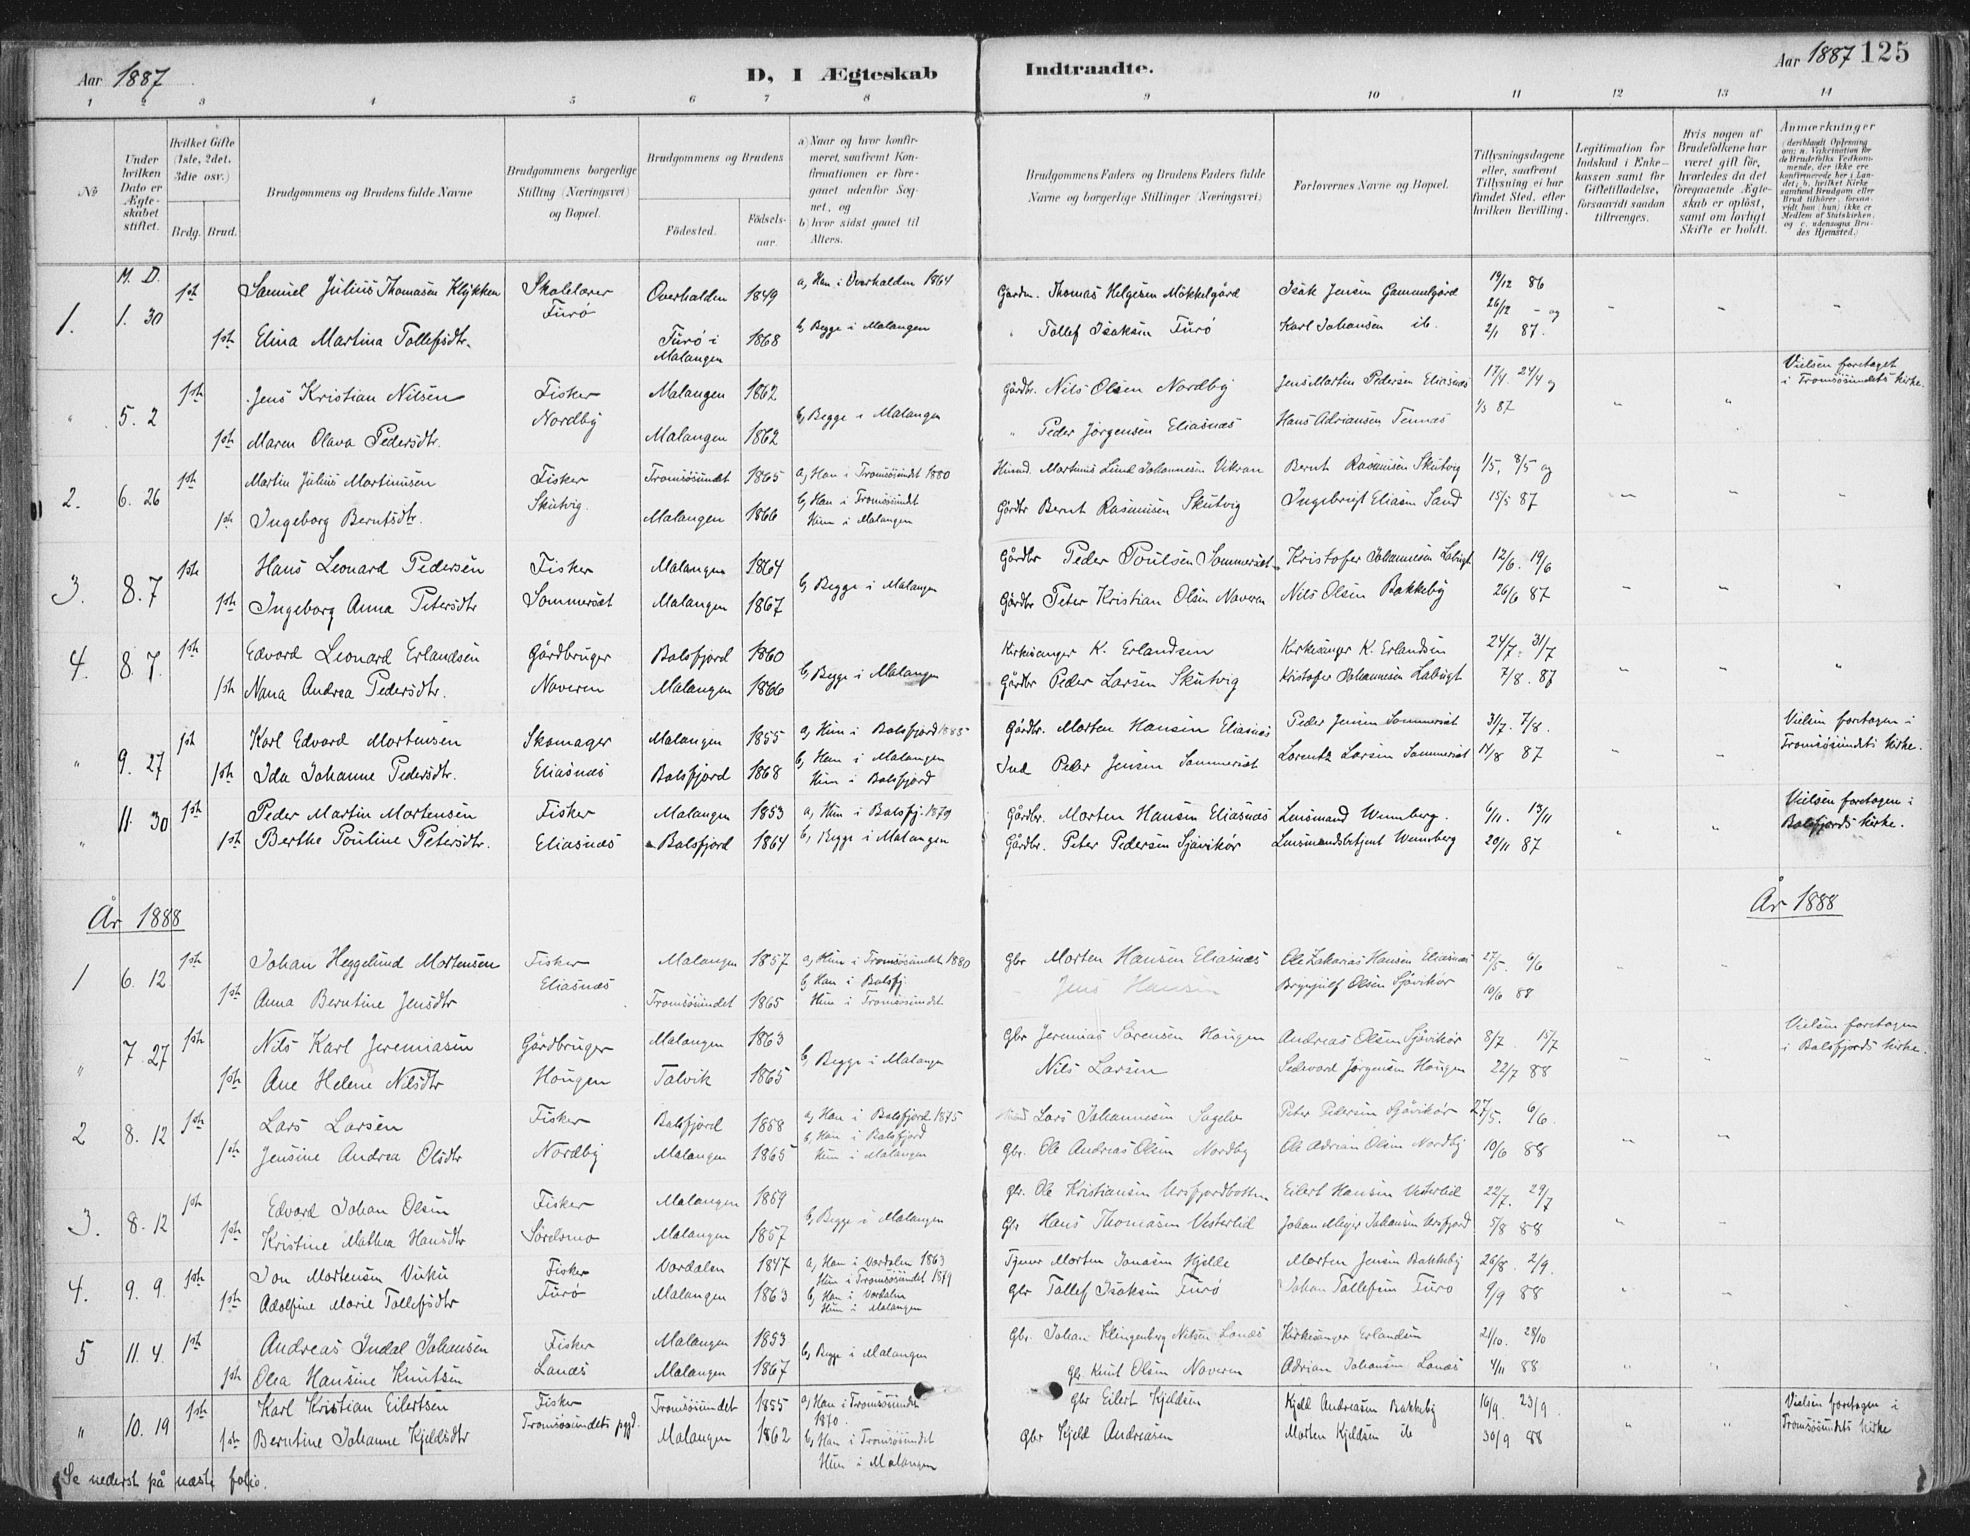 Aar 1887
D, I Ægteskab
Indtraadte.
Aar 1887 125
1 2 3 4 5 6 7 8 9 10 11 12 13 14
No
Under hvilken Dato er Ægteskabet stiftet.
Hvilket Gifte (1ste, 2det, 3die osv.)
Brdg. Brud.
Brudgommens og Brudens fulde Navne
Brudgommens borgerlige Stilling (Næringsvei) og Bopæl.
Brudgommens og Brudens
Fødested.
Fødselsaar.
a) Naar og hvor konfirmeret, saafremt Konfirmationen er foregaaet udenfor Sognet, og
b) hvor sidst gaaet til Alters.
Brudgommens Faders og Brudens Faders fulde Navne og borgerlige Stillinger (Næringsvei)
Forlovernes Navne og Bopæl.
Tillysningsdagene eller, saafremt Tillysning ei har fundet Sted, efter hvilken Bevilling.
Legitimation for Indskud i Enkekassen samt for Giftetilladelse, forsaavidt saadan tiltrænges.
Hvis nogen af Brudefolkene har været gift før, hvorledes da det foregaaende Ægteskab er opløst, samt om lovligt Skifte er holdt.
Anmærkninger
(deriblandt Oplysning om: a. Vakcination for de Brudefolks Vedkommende, der ikke ere konfirmerede her i Landet; b. hvilket Kirkesamfund Brudgom eller Brud tilhører, forsaavidt han (hun) ikke er Medlem af Statskirken, og c. udensogns Brudes Hjemsted.)
M. D.
1. 1. 30 1ste Samuel Julius Thomasen Klykken Skolelærer Overhalden 1849 a, Han i Overhalden 1864 Gaardm. Thomas Helgesen Mökkelgård Isak Jensen Gammelgård 19/12 86
Furö 26/12 - og
1ste Elina Martina Tollefsdtr. Furö i Malangen 1868 b, Begge i Malangen " Tollef Isaksen Furö Karl Johansen ib. 2/1 87.
" 5. 2 1ste Jens Kristian Nilsen Fisker Malangen 1862 Gårdbr. Nils Olsen Nordby Jens Martin Pedersen Eliasnæs 17/4 24/4 og Vielsen foretaget i Tromsösundets kirke.
Nordby b, Begge i Malangen 1/5 87
1ste Maren Olava Pedersdtr. Malangen 1862 " Peder Jørgensen Eliasnæs Hans Adriansen Tennæs
2. 6. 26 1ste Martin Julius Martinusen Fisker Tromsösundet 1865 a, Han i Tromsösundet 1880 Martinus Lund Johannesen Vikran Bernt Rasmusen Skutvig 1/5, 8/5 og
Skutvig b, Han i Tromsösundet
1ste Ingeborg Berntsdtr. Malangen 1866 Hun i Malangen Gårdbr Bernt Rasmusen Skutvig Ingebrigt Eliasen Sand 15/5 87
3. 8. 7 1ste Hans Leonard Pedersen Fisker Malangen 1864 Gårdbr Peder Poulsen Sommersæt Kristofer Johannesen Labugt 12/6. 19/6
1ste Ingeborg Anna Petersdtr Sommersæt Malangen 1867 b, Begge i Malangen Gårdbr Peter Kristian Olsen Naveren Nils Olsen Bakkeby 26/6 87
4. 8. 7. 1ste Edvard Leonard Erlandsen Gårdbruger Balsfjord 1860 Kirkesanger K. Erlandsen Kirkesanger K. Erlandsen 24/7. 31/7
1ste Nana Andrea Pedersdtr. Naveren Malangen 1866 b, Begge i Malangen Gårdbr Peder Larsen Skutvig Kristofer Johannesen Labugt 7/8. 87
" 9. 27 1ste Karl Edvard Mortensen Skomager Malangen 1855 a, Hun i Balsfjord 1885 Gårdbr. Morten Hansen Eliasnæs Peder Jensen Sommersæt 31/7. 7/8. Vielsen foretagen i Tromsösundets kirke.
b, Ham i Malangen
1ste Ida Johanne Pedersdtr. Eliasnæs Balsfjord 1868 Hun i Balsfjord Ind Peder Jensen Sommersæt Lorentz Larsen Sommersæt 14/8 87
" 11. 30 1ste Peder Martin Mortensen Fisker Malangen 1853 a, Hun i Balsfj. 1879 Gårdbr. Morten Hansen Eliasnæs Lensmand Wennberg. 6/11. 13/11 Vielsen foretagen i Balsfjords kirke.
1ste Berthe Pouline Petersdtr. Eliasnæs Balsfjord 1864 b, Begge i Malangen Gårdbr. Peter Pedersen Sjåvikör Lensmandsbetjent Wennberg 20/11 87
År 1888
År 1888
1 6. 12 1ste Johan Heggelund Mortensen Fisker Malangen 1857 a, Hun i Tromsösundet 1880 Gbr Morten Hansen Eliasnæs Ole Zakarias Hansen Eliasnæs 27/5. 6/6
Eliasnæs b, Han i Balsfj.
1ste Anna Berntine Jensdtr Tromsösundet 1865 Hun i Tromsösundet Jens Hansen Brynjulf Olsen Sjövikör 10/6 88
" 7. 27 1ste Nils Karl Jeremiasen Gårdbruger Malangen 1863 Gbr Jeremias Sörensen Hougen Andreas Olsen Sjövikör 8/7. 15/7 Vielsen foretagen i Balsfjords kirke.
1ste Ane Helene Nilsdtr Hougen Talvik 1865 b, Begge i Malangen Nils Larsen Sedevard Jørgensen Hougen 22/7 88
2 8. 12 1ste Lars Larsen Fisker Balsfjord 1858 a, Han i Balsfjord 1875 Lars Johannesen Sagelv Peter Pedersen Sjåvikör 27/5. 6/6.
b, Han i Balsfjord
1ste Jensine Andrea Olsdtr Nordby Malangen 1865 Hun i Malangen Gbr. Ole Andreas Olsen Nordby Ole Adrian Olsen Nordby 10/6 88
3. 8. 12 1ste Edvard Johan Olsen Fisker Malangen 1859 gbr. Ole Kristiansen Ursfjordbotten Eilert Hansen Vesterlid 22/7. 29/7
1ste Kristine Mathea Hansdtr Malangen 1857 b, Begge i Malangen Gbr Hans Thomasen Vesterlid Johan Meyer Johansen Ursfjord 5/8 88
4. 9. 9. 1ste Jon Mortensen Vuku Fisker Værdalen 1847 a, Han i Værdalen 1863 Tjener Morten Jonasen Hjelde Morten Jensen Bakkeby 26/8. 2/9.
Hun i Tromsösundet 1879
1ste Adolfine Marie Tollefsdtr Furö Malangen 1863 b, Han i Værdalen Gbr Tollef Isaksen Furö Johan Tollefsen Furö 9/9 88
Hun i Malangen
5 11. 4. 1ste Andreas Indal Johansen Fisker Malangen 1853 Gbr. Johan Klingenberg Nilsen Lanæs Kirkesanger Erlandsen 21/10. 28/10
1ste Olea Hansine Knutsen Lanæs Malangen 1867 b, Begge i Malangen Gbr Knut Olsen Naveren Adrian Johansen Lanæs 4/11 88
" 10. 19 1ste Karl Kristian Eilertsen Fisker Tromsösundet 1855 a, Han i Tromsösundet 1870. Gbr Eilert Kjeldsen Kjell Andreasen Bakkeby 16/9. 23/9. Vielsen foretagen i Tromsösundets kirke
1ste Berntine Johanne Kjeldsdtr Tromsösundets pgd. Malangen 1862 b, Han i Tromsösundet Gbr Kjeld Andreasen Morten Kjeldsen ib 30/9 88
Hun i Malangen
Se nederst på næste folio.